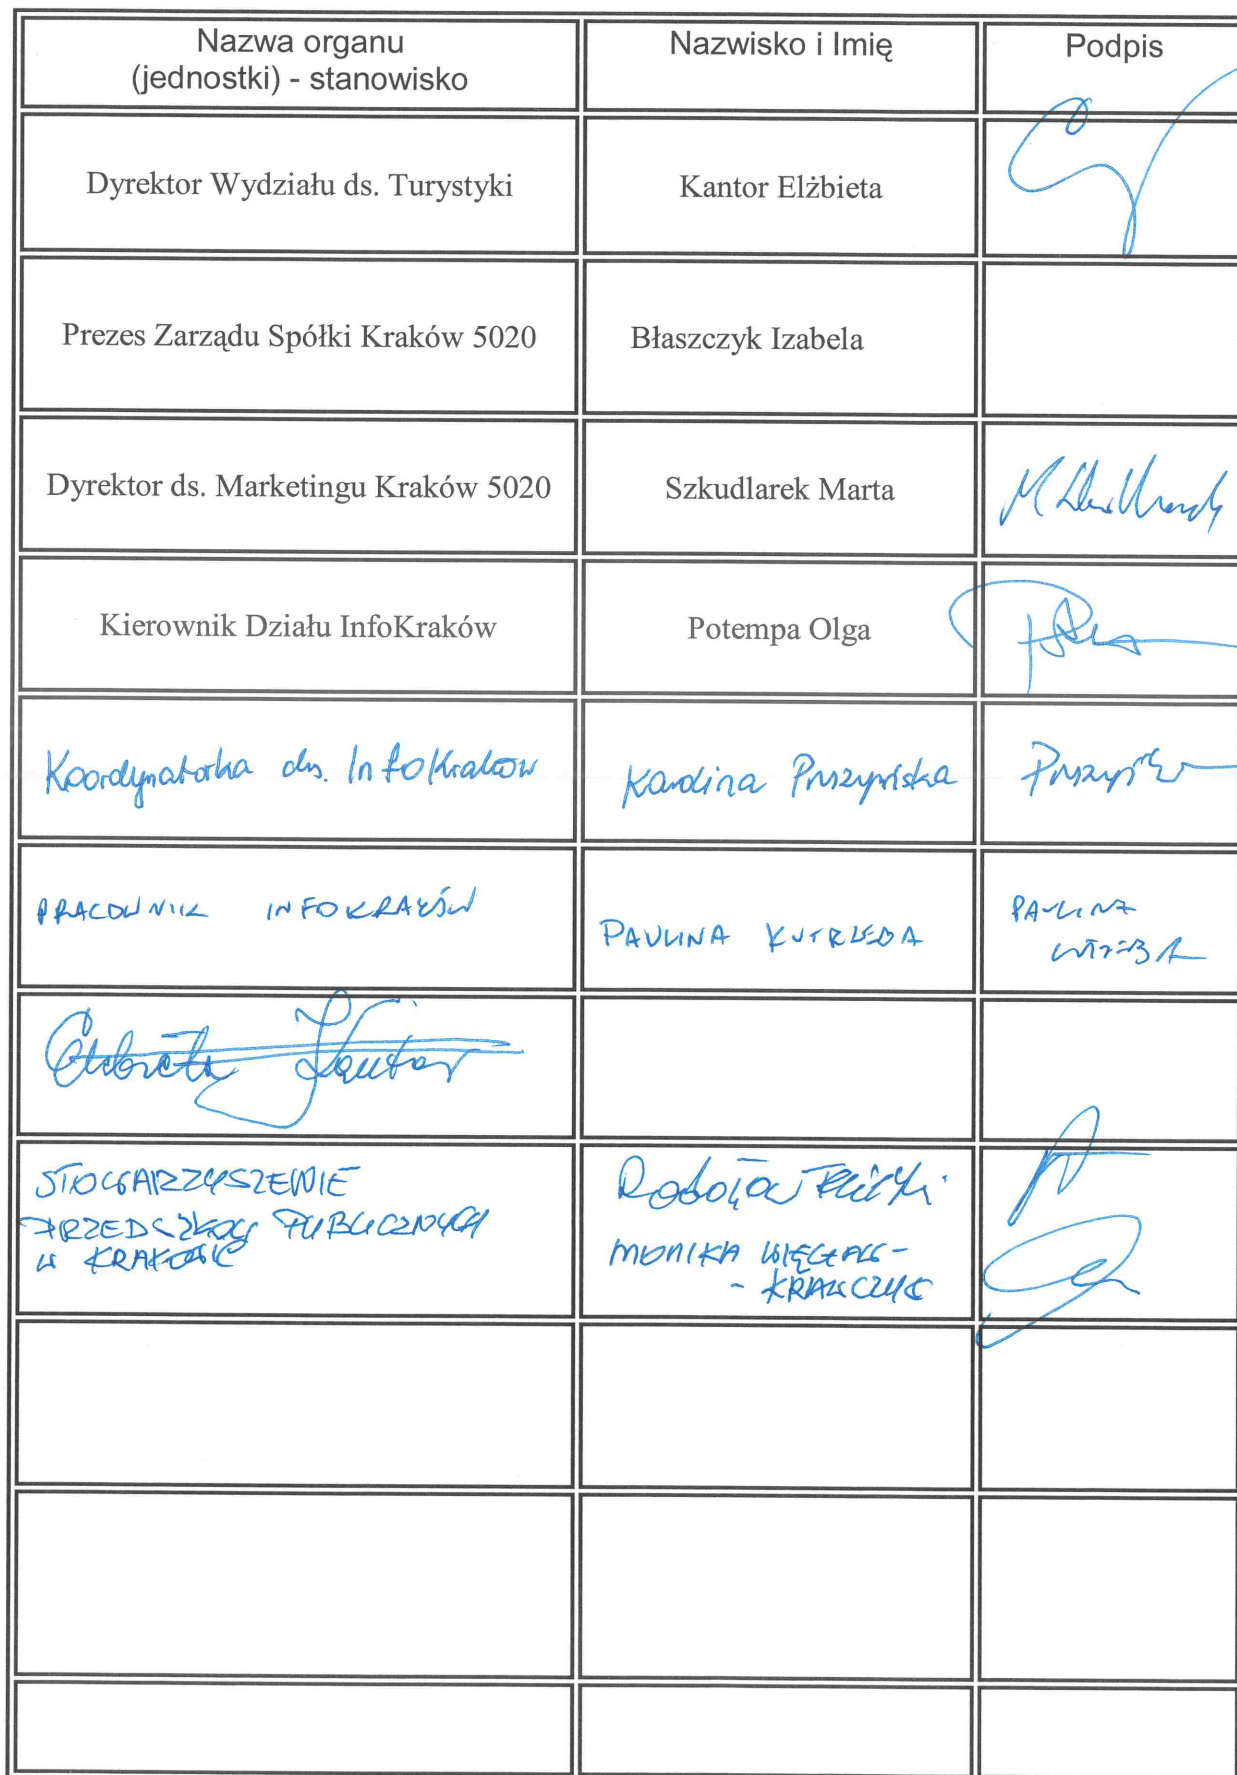 Nazwa organu
(jednostki) - stanowisko
Nazwisko i Imię
Podpis
Dyrektor Wydziału ds. Turystyki
Kantor Elżbieta
Prezes Zarządu Spółki Kraków 5020
Błaszczyk Izabela
Dyrektor ds. Marketingu Kraków 5020
Szkudlarek Marta
Kierownik Działu InfoKraków
Potempa Olga
Koordynatorka ds. InfoKraków
Karolina Pruszyńska
PRACOWNIK INFOKRAKÓW
PAULINA KUTRZEBA
PAULINA
Elżbieta Kantor
STOWARZYSZENIE
PUBLICZNYCH
W KRAKOWIE
MONIKA
- KRAWCZYK